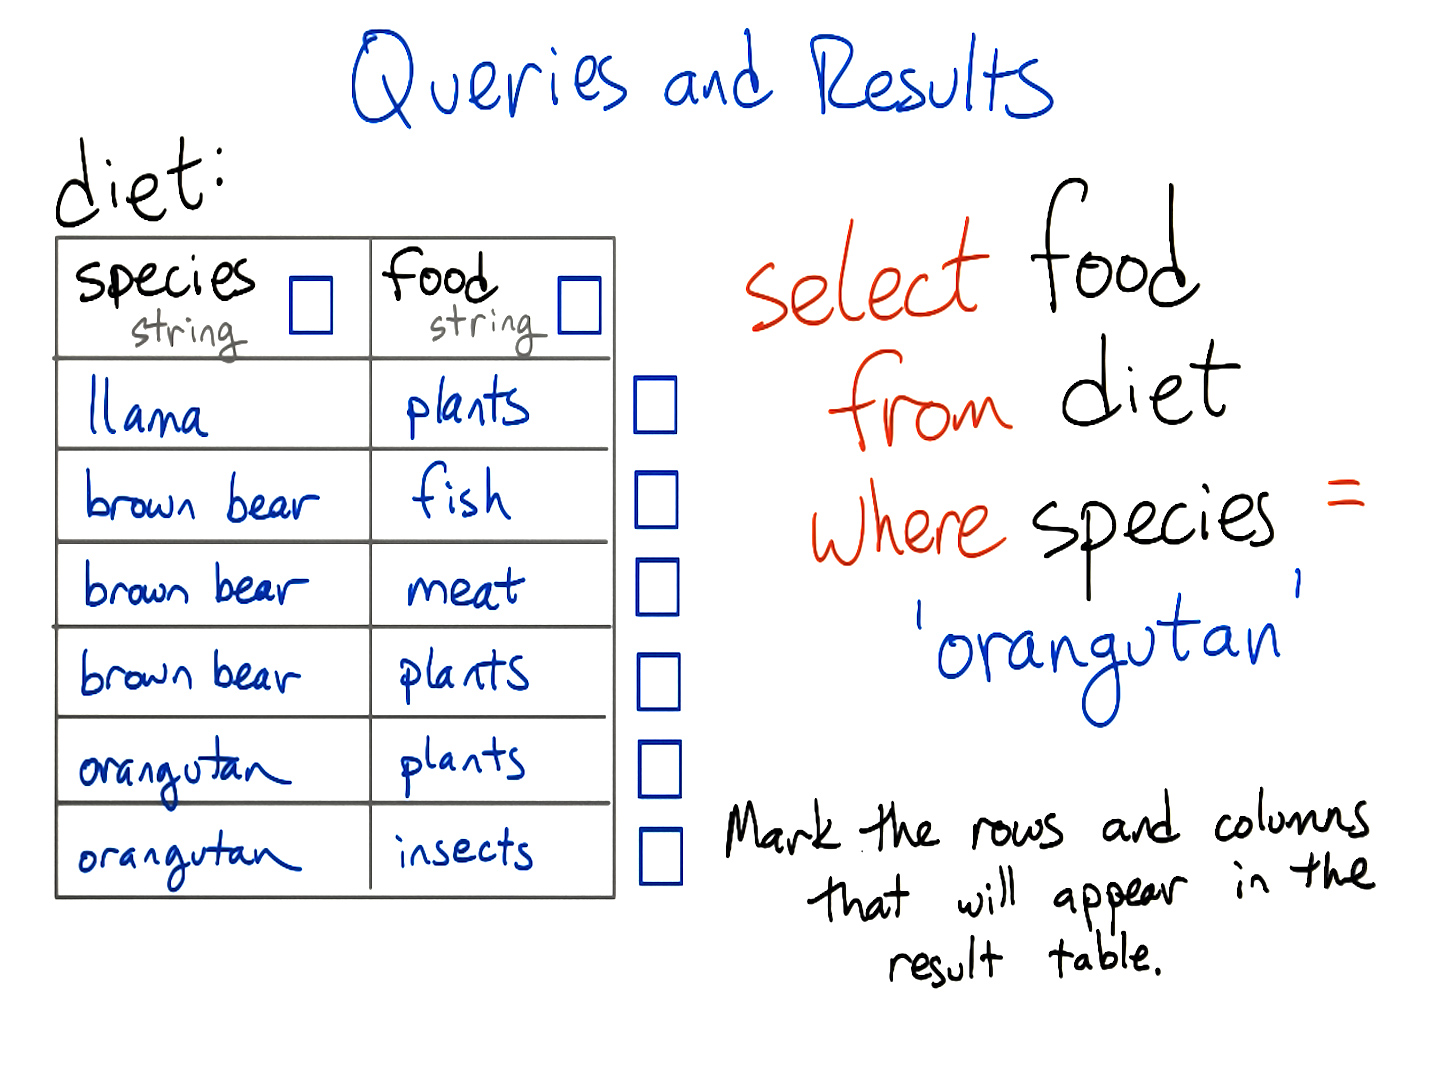 Queries and Results
diet:
species food
string string
llama plants
brown bear fish
brown bear meat
brown bear plants
orangutan plants
orangutan insects
select food
from diet
where species =
'orangutan'
Mark the rows and columns
that will appear in the
result table.